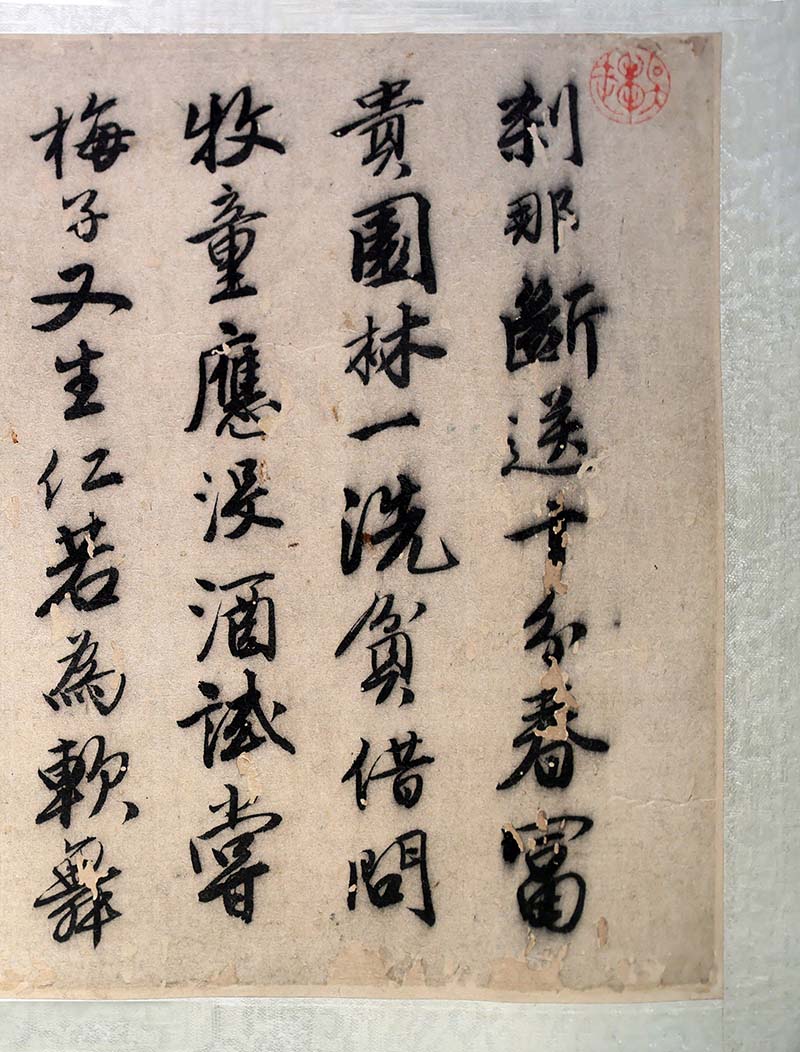 刹那斷送十分春富
貴園林一洗貧借問
牧童應沒酒試嘗
梅子又生仁若為軟舞